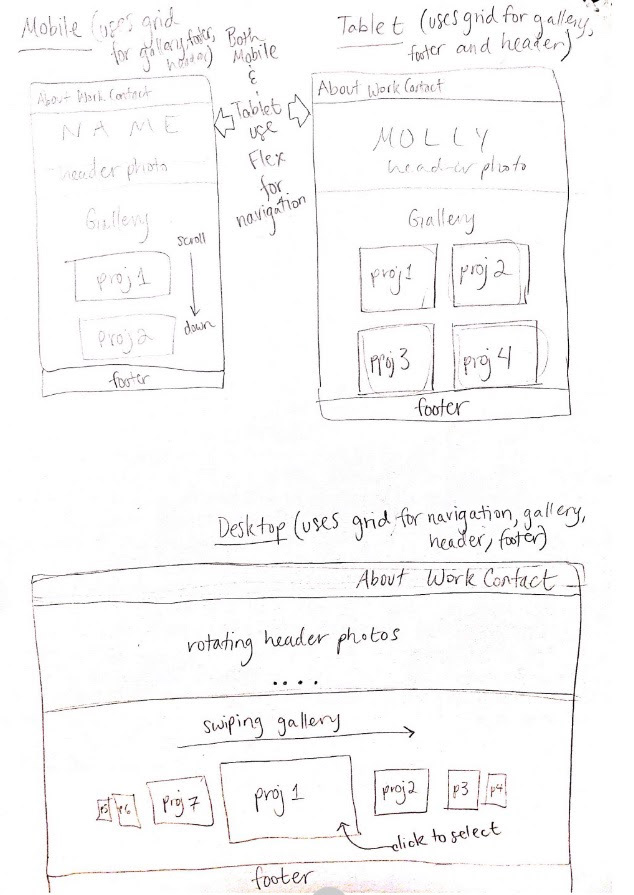 Mobile (uses grid
for gallery, footer,
header)
Both
Mobile
&
Tablet
use
Flex
for
navigation
About Work Contact
NAME
header photo
Gallery
scroll
proj 1
down
proj 2
footer
Tablet (uses grid for gallery,
footer and header)
About Work Contact
MOLLY
header photo
Gallery
proj 1
proj 2
proj 3
proj 4
footer
Desktop (uses grid for navigation, gallery,
header, footer)
About Work Contact
rotating header photos
....
swiping gallery
p5
p6
proj 7
proj 1
proj 2
p3
p4
click to select
footer